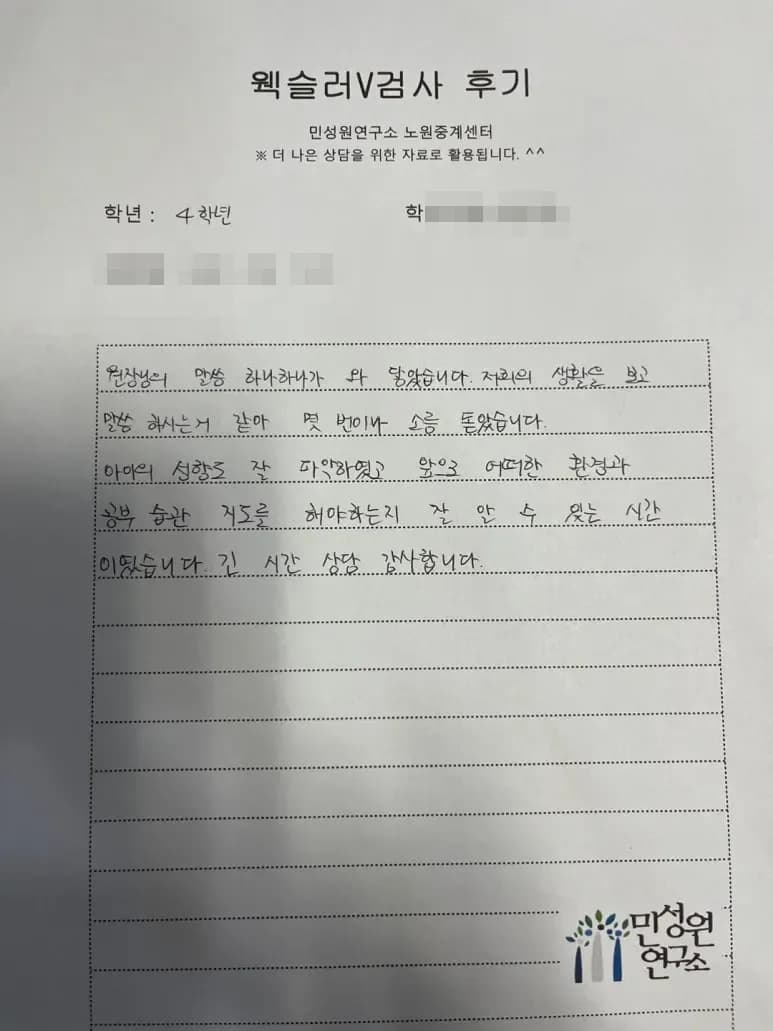 웩슬러V검사 후기
민성원연구소 노원중계센터
※ 더 나은 상담을 위한 자료로 활용됩니다. ^^
학년 : 4학년
학
원장님의 말씀 하나하나가 와 닿았습니다. 저희의 생활을 보고
말씀 하시는거 같아 몇 번이나 소름 돋았습니다.
아이의 성향도 잘 파악하였고 앞으로 어떠한 환경과
공부 습관 지도를 해야하는지 잘 알 수 있는 시간
이였습니다. 긴 시간 상담 감사합니다.
민성원
연구소